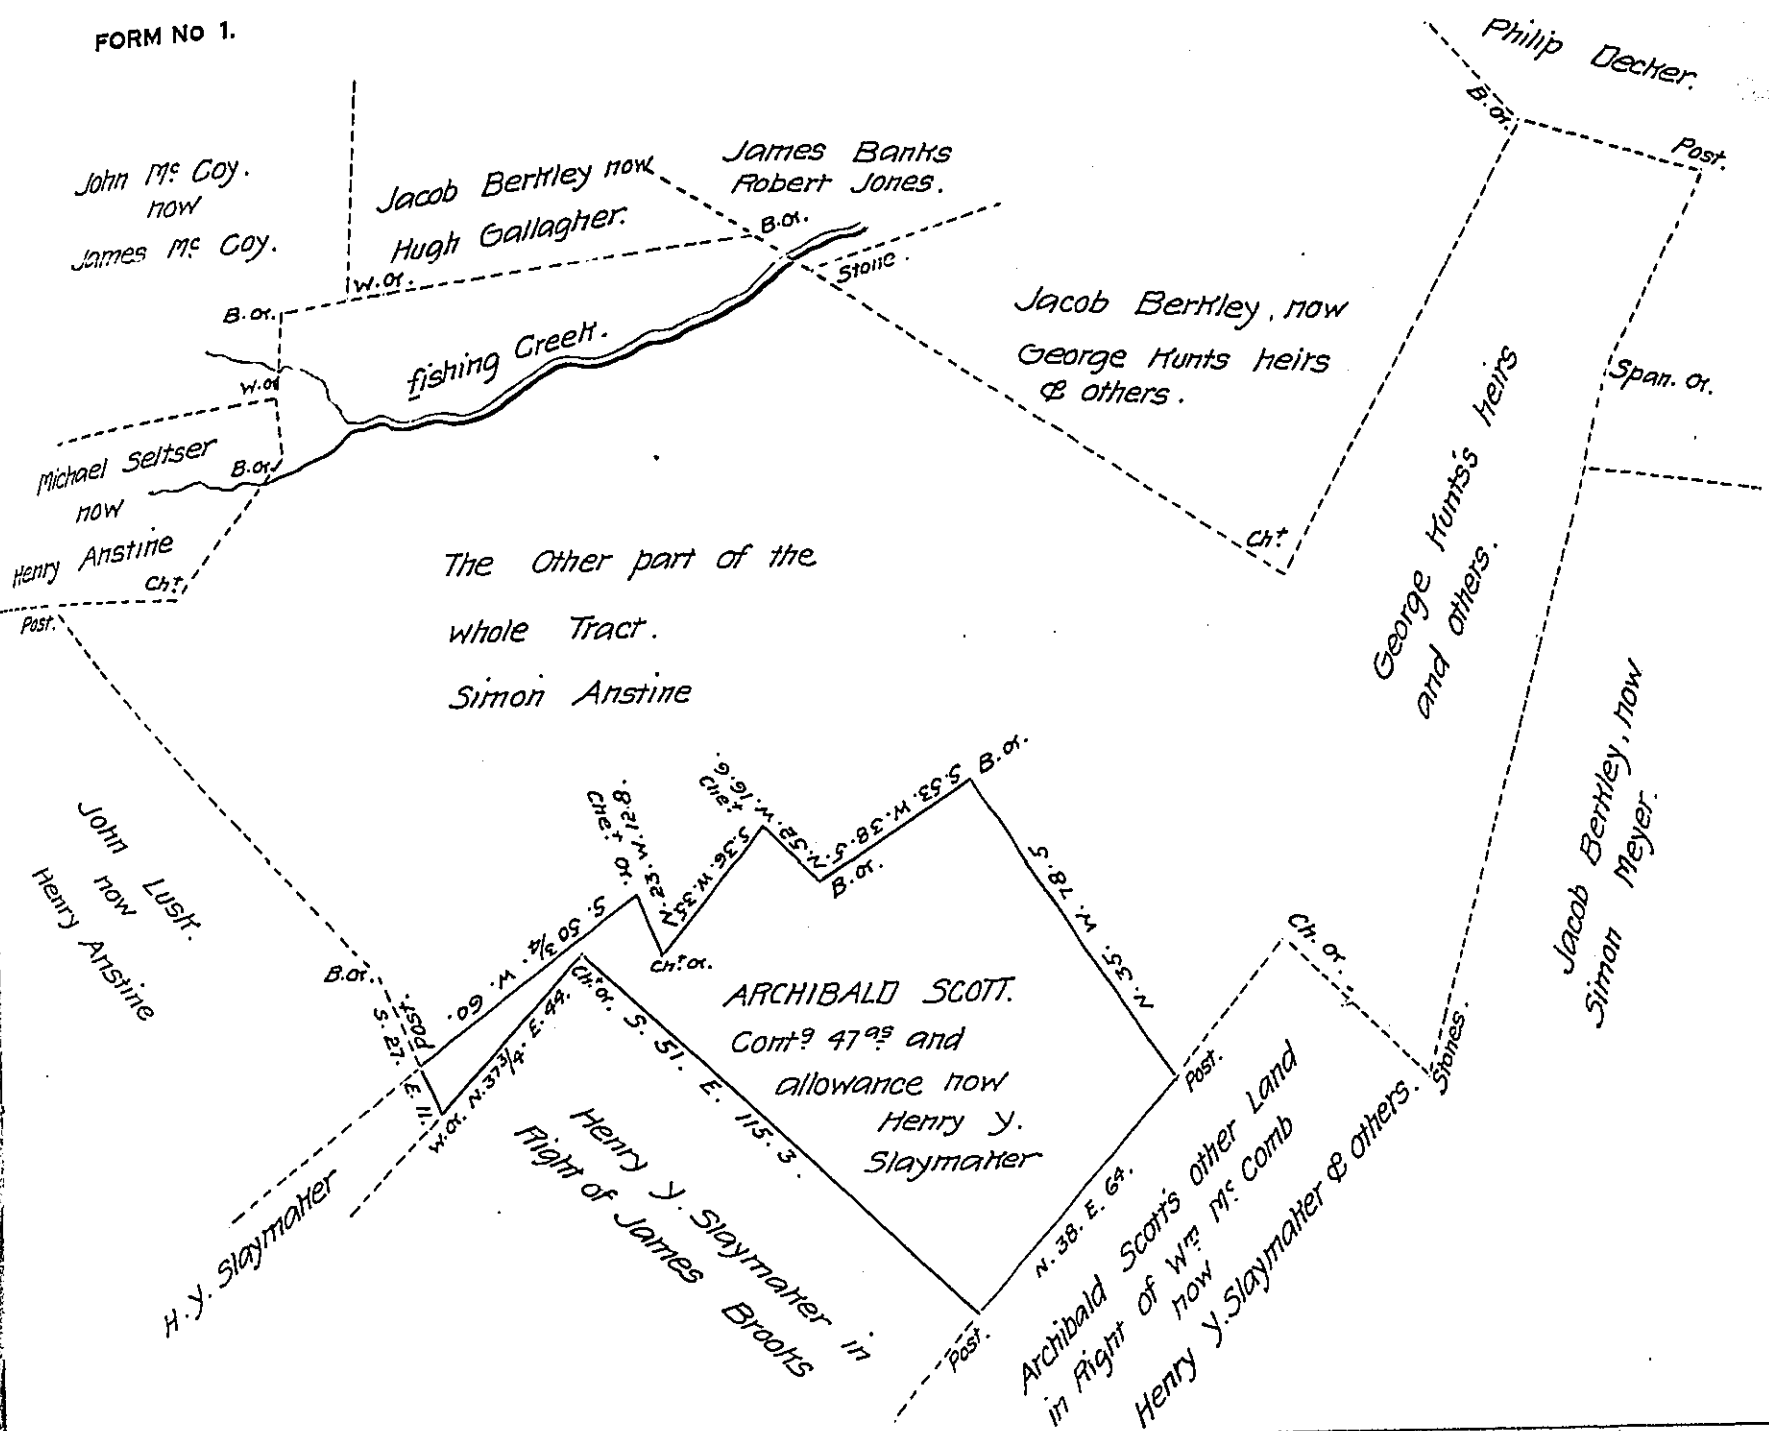 FORM No 1.
Philip Decker.
B.or.
Post.
John Mc Coy.
now
James Mc Coy.
Jacob Berkley now
Hugh Gallagher.
James Banks
Robert Jones.
B.or.
Stone.
W.or.
B.or.
W.or
fishing Creek.
Jacob Berkley, now
George Kunts heirs
& others.
Span. or.
Michael Seltser
now
Henry Anstine
B.or.
Cht.
Post.
Cht
George Kunts's heirs
and others.
The Other part of the
whole Tract.
Simon Anstine
Jacob Berkley, now
Simon Meyer.
John Lusk.
now
Henry Anstine
B.or.
S. 27. E. 11.
Post.
S. 50 3/4. W. 60.
Chet or.
N. 23. W. 12.8.
Cht or.
S. 36. W. 35
Chet
N. 52. W. 16.6.
B.or.
S. 53. W. 38.5.
B.or.
N. 35. W. 78.5
Ch. or.
Stones.
W.or.
N. 37 3/4. E. 44.
Cht or.
S. 51. E. 115.3.
ARCHIBALD SCOTT.
Contg 47as and
allowance now
Henry Y.
Slaymaker
Post.
N. 38. E. 64.
Post.
H.Y. Slaymaker
Henry Y. Slaymaker in
Right of James Brooks
Archibald Scott's other Land
in Right of Wm Mc Comb
now
Henry Y. Slaymaker & others.